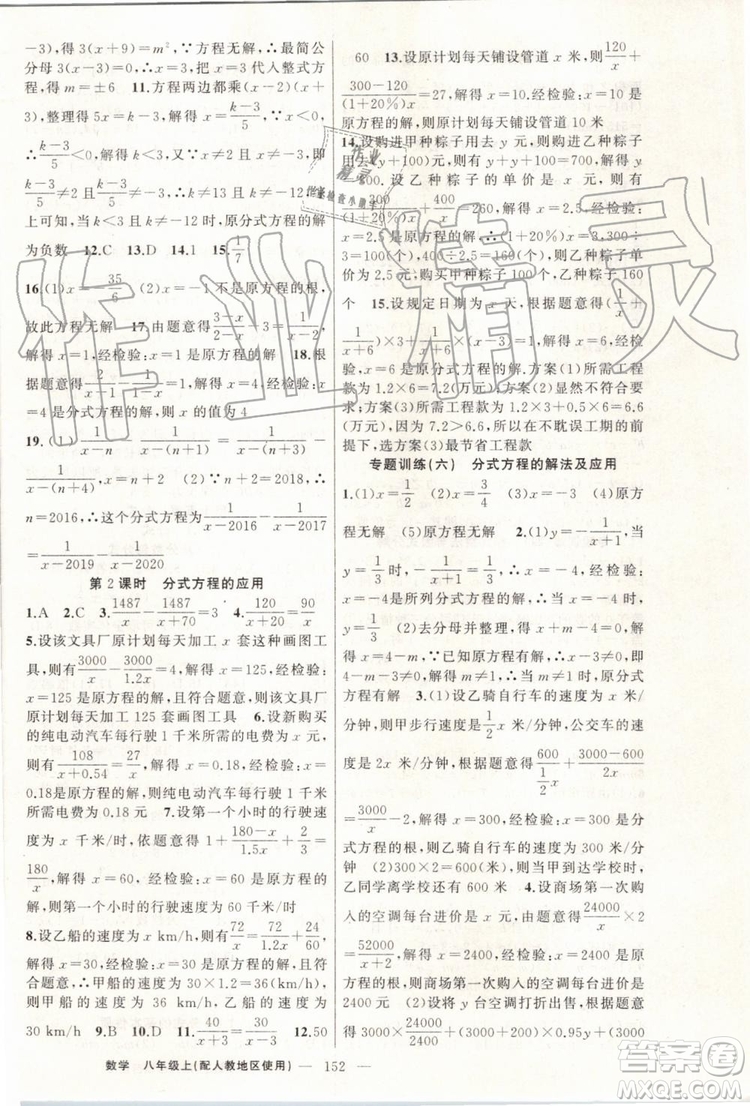 -3),得 3(x+9)=m²,∵方程无解,∴最简公
分母 3(x-3)=0,∴x=3,把 x=3 代人整式方
程,得 m=±6 11.方程两边都乘(x-2)(x+
3),整理得 5x=k-3,解得 x=(k-3)/5,∵x<0,
∴(k-3)/5<0,解得 k<3,∵x≠2 且 x≠-3,∴
(k-3)/5≠2 且 (k-3)/5≠-3,即 k≠13 且 k≠-12,综
上可知,当 k<3 且 k≠-12 时,原分式方程的解
为负数 12.C 13.D 14.1 15.1/7
16.(1)x=35/6 (2)x=-1 不是原方程的根,
故此方程无解 17.由题意得 (3-x)/(2-x)-1/(x-2)=3,
解得 x=1,经检验:x=1 是原方程的解 18.根
据题意得 2/(x-1)-1/(x-1)=
=4 是分式方程的解,则 x 的值为 4
19.∴1/(x-n)-1/(x-(n+1))=
1/(x-(n+3))-1/(x-(n+4)),x=n+2 ∵n+2=2018,∴
n=2016,∴这个分式方程为 1/(x-2016)-1/(x-2017)
=1/(x-2019)-1/(x-2020)
第 2 课时 分式方程的应用
1.A 2.C 3.1487/x-1487/(x+70)=3 4.120/(x+20)=90/x
5.设该文具厂原计划每天加工 x 套这种画图工
具,则 3000/x-3000/1.2x=4,解得 x=125,经检验:
x=125 是原方程的解,且符合题意,则该文具厂
原计划每天加工 125 套画图工具 6.设新购买
的纯电动汽车每行驶 1 千米所需的电费为 x 元,
则 108/(x+0.54)=27/x,解得 x=0.18,经检验:x=
0.18是原方程的解,则纯电动汽车每行驶 1 千米
所需的电费为 0.18 元 7.设第一个小时的行驶
速度为 x 千米/时,依题意得 1+(180-x)/1.5x+2/3=
180/x,解得 x=60,经检验:x=60 是原方程的解,则
第一个小时的行驶速度为 60 千米/时
8.设乙船的速度为 x km/h,则 72/x=72/1.2x+24/60,
解得 x=30,经检验:x=30 是原方程的解,且符
合题意,则甲船的速度为 36 km/h,乙船的速度为
30 km/h 9.B 10.D 11.A 12.50
60 13.设原计划每天铺设管道 x 米,则 120/x+
(300-120)/((1+20%)x)=27,解得 x=10,经检验:x=10 是
原方程的解,则原计划每天铺设管道 10 米
14.设购进甲种粽子用去 y 元,则购进乙种粽子
用去 元,则有 y+y+100=700,解得 y=
300,设乙种粽子的单价是 x 元,则有
300/((1+20%)x)+400/x=260,解得 x=2.5,经检验:
x=2.5 是原方程的解,∴(1+20%)x=3,300÷
3=100,400÷2.5=160,则购进乙种粽子 160
个 15.设规定日期为 x 天,根据题意得(1/x+
1/(x+6))×3+1/(x+6)×(x-3)=1,解得 x=6,经检验:
x=6 是原方程的解,∵方案(1)所需工程
款为 1.2×6=7.2(万元);方案(2)不符合要
求;方案(3)所需工程款为 1.2×3+0.5×6=6.6
(万元),∵7.2>6.6,所以在不耽误工期的前
提下,选方案(3)最节省工程款
专题训练(六) 分式方程的解法及应用
1.(1)x=1/2 (2)x=3/4 (3)x=-3 (4)原方
程无解 (5)原方程无解 2.(1)y=-1/(x+1),当
y=1/3 时,得 -1/(x+1)=1/3,解得 x=-4,经检验:x
=-4 是所列分式方程的解,∴当 x=-4 时,y=
1/3 (2)去分母并整理,得 x+m-4=0,解得 x=
4-m,∵已知原方程有解,∴x-3≠0,∴
4-m-3≠0,∴m≠1,∴当 m≠1 时,原分式
方程有解 3.(1)设乙骑自行车的速度为 x 米/
分钟,则甲步行速度为 1/2 x 米/分钟,公交车的速
度为 2x 米/分钟,根据题意得 600/(1/2 x)+(3000-600)/2x
=3000/x-2,解得 x=300,经检验:x=300 是分
式方程的根,则乙骑自行车的速度为 300 米/分
钟 (2)300×2=600(米),则当甲到达学校时,
乙同学离学校还有 600 米 4.设商场第一次购
入的空调每台进价是 x 元,由题意得 24000/x×2
=52000/(x+200),解得 x=2400,经检验:x=2400 是原
方程的根,则商场第一次购入的空调每台进价是
2400 元 (2)设将 y 台空调打折出售,根据题意
得 3000×24000/2400+(3000+200)×0.95y+(3000
数学 八年级上(配人教地区使用) — 152 —
作业精灵